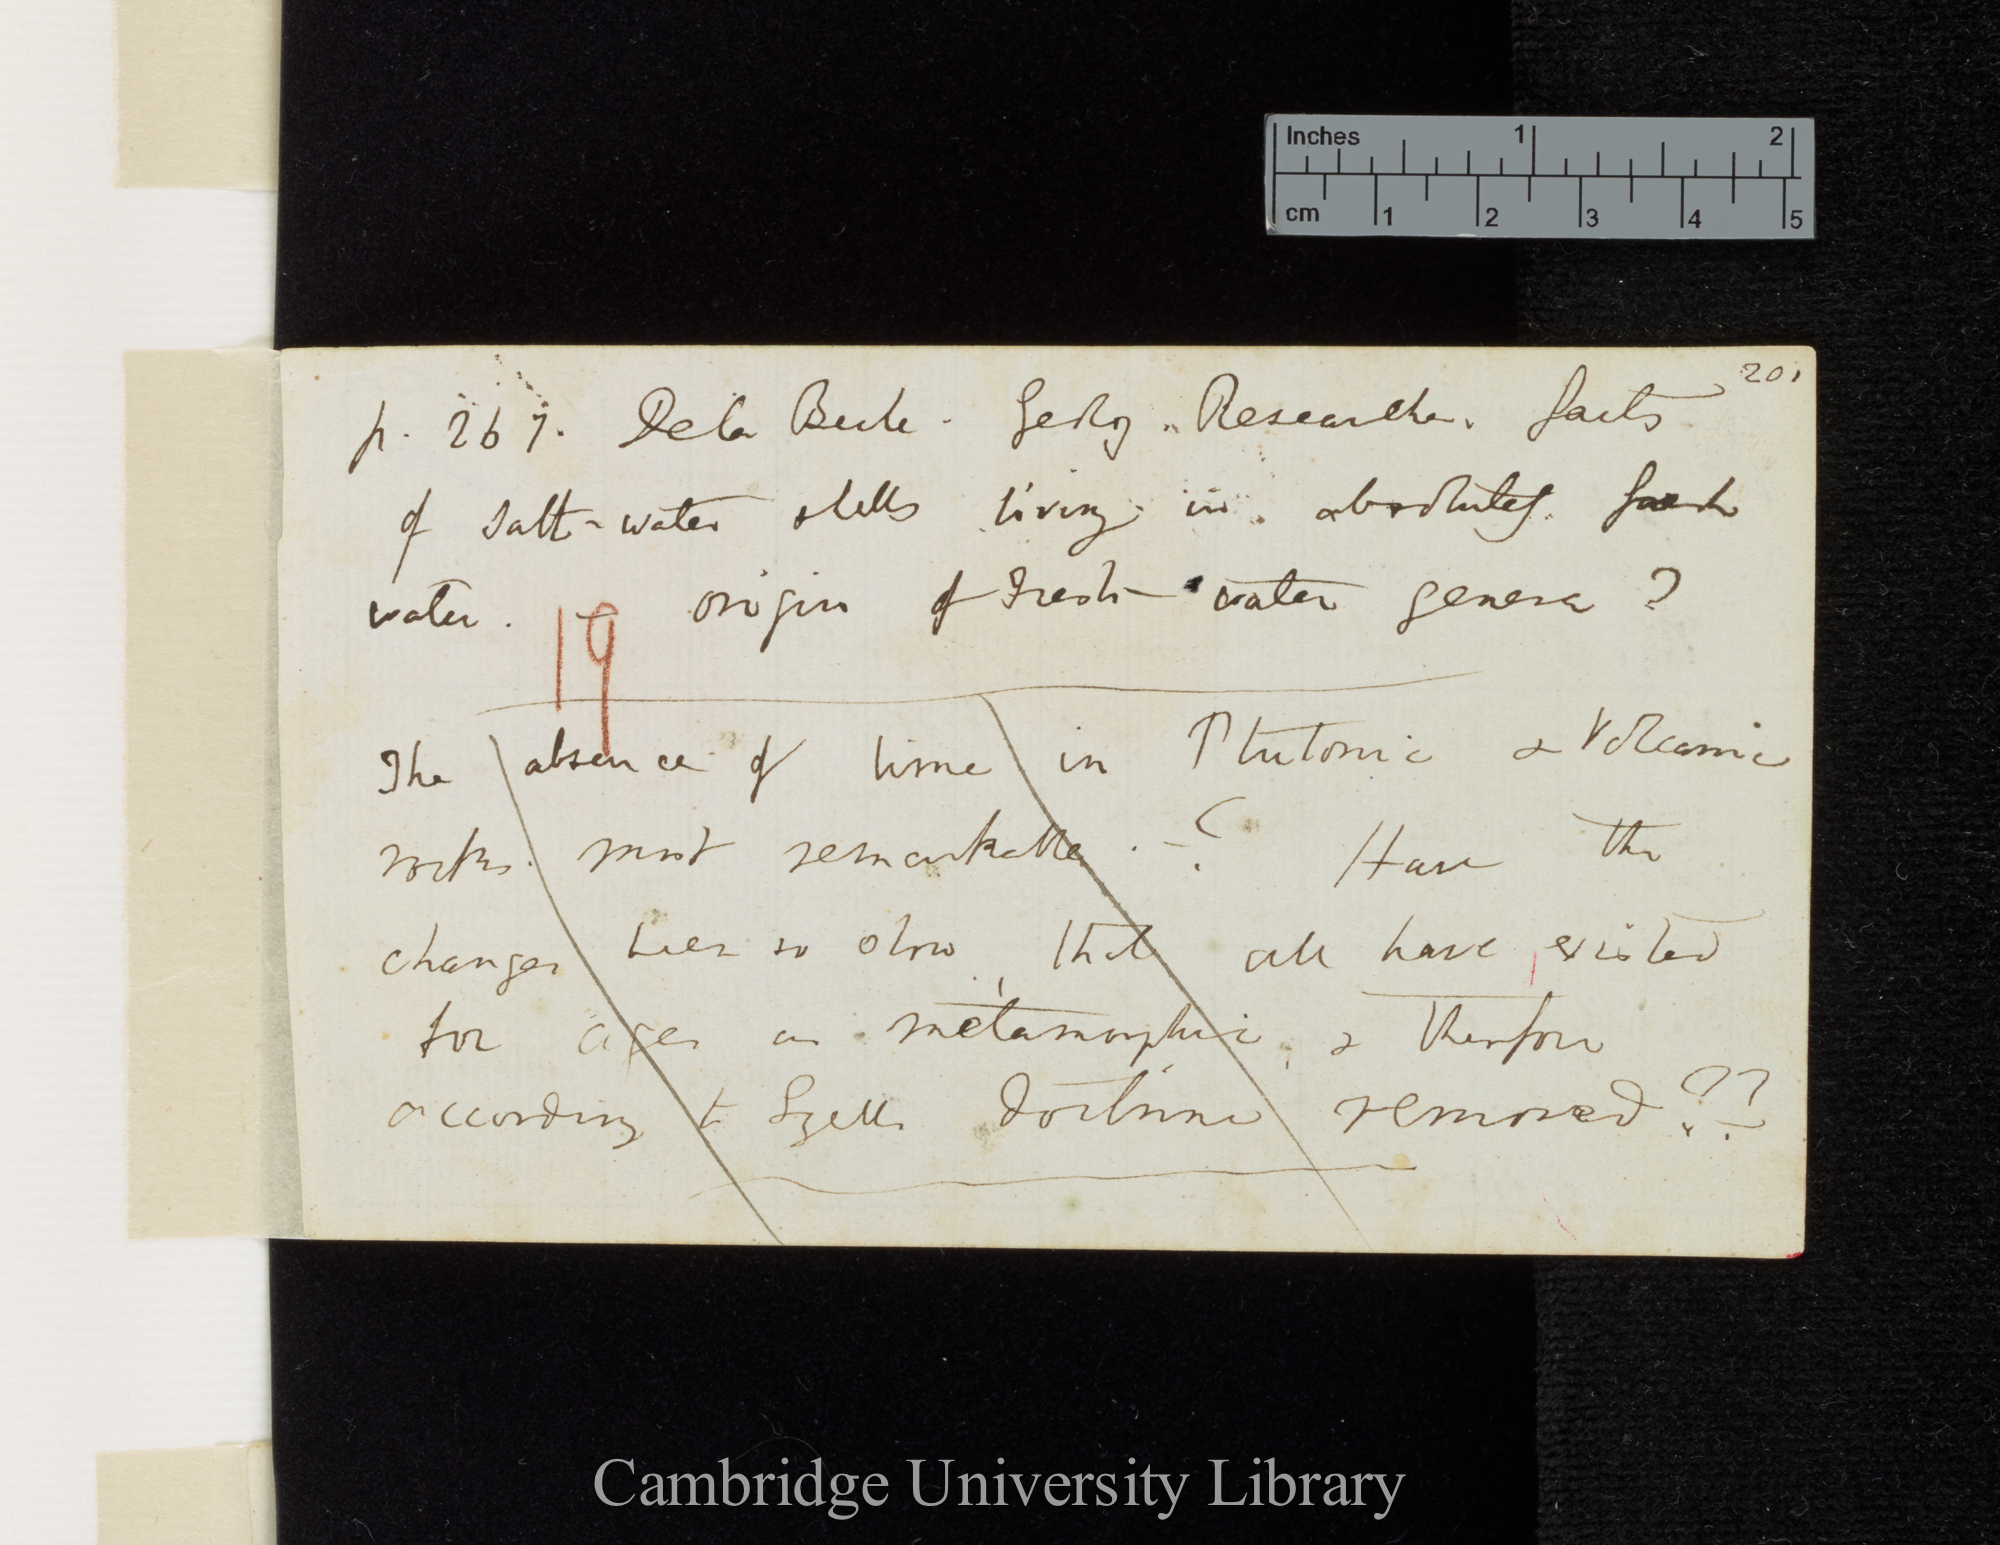 Inches 1 2
cm 1 2 3 4 5
201
p. 267. De la Beche. Geolog. Researches. facts
of salt-water shells living in absolutely fresh
water. origin of Fresh-water genera?
19
The absence of time in Plutonic & Volcanic
rocks. most remarkable. -? Have the
changes been so slow, that all have existed
for ages as metamorphic, & therefore
according to Lyells doctrine removed??
Cambridge University Library